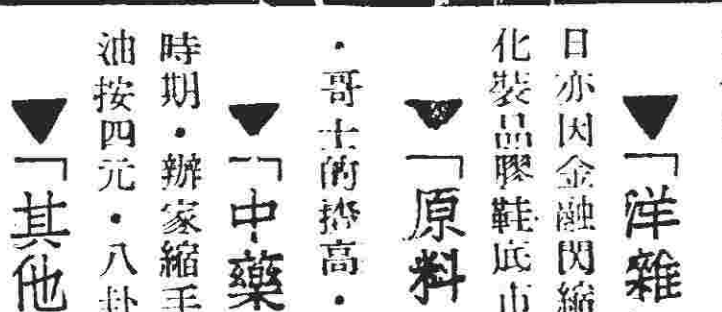 ▼「洋雜
日亦因金融閃縮
化裝品膠鞋底市
▼「原料
・哥士的擠高・
▼「中藥
時期・辦家縮手
油按四元・八卦
▼「其他